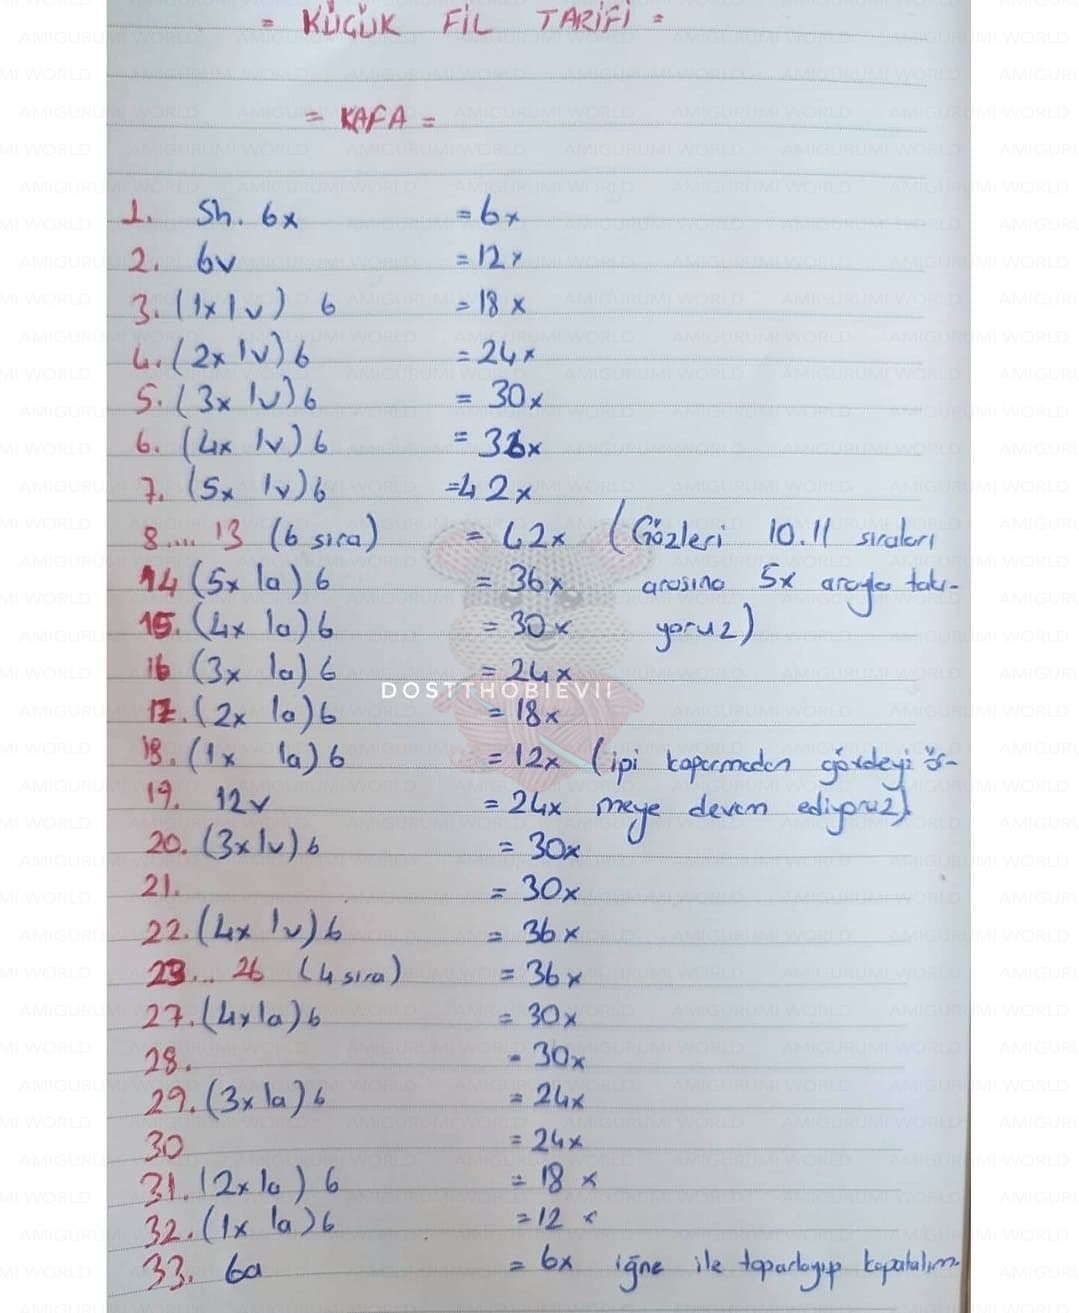 = KÜÇÜK FİL TARİFİ =
= KAFA =
1. Sh. 6x = 6x
2. 6v = 12x
3. (1x 1v) 6 = 18x
4. (2x 1v) 6 = 24x
5. (3x 1v) 6 = 30x
6. (4x 1v) 6 = 36x
7. (5x 1v) 6 = 42x
8.... 13 (6 sıra) = 42x (Gözleri 10.11 sıraları
14 (5x 1a) 6 = 36x arasına 5x arayla takı-
15. (4x 1a) 6 = 30x yoruz)
16 (3x 1a) 6 = 24x
DOSTTHOBIEVII
17. (2x 1a) 6 = 18x
18. (1x 1a) 6 = 12x (ipi koparmadan gövdeyi ör-
19. 12v = 24x meye devam ediyoruz)
20. (3x 1v) 6 = 30x
21. = 30x
22. (4x 1v) 6 = 36x
23... 26 (4 sıra) = 36x
27. (4x 1a) 6 = 30x
28. = 30x
29. (3x 1a) 6 = 24x
30 = 24x
31. (2x 1a) 6 = 18x
32. (1x 1a) 6 = 12x
33. 6a = 6x iğne ile toparlayıp kapatalım.
AMIGURUMI WORLD